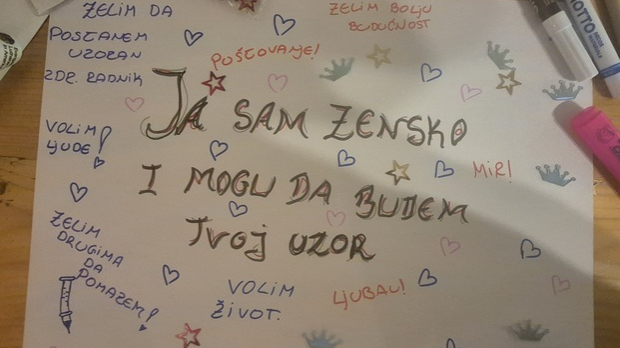 ŽELIM DA
POSTANEM
UZORAN
ZDR. RADNIK
POŠTOVANJE!
ŽELIM BOLJU
BUDUĆNOST
JA SAM ŽENSKO
VOLIM
LJUDE!
I MOGU DA BUDEM
MIR!
TVOJ UZOR
ŽELIM
DRUGIMA
DA
POMAŽEM!
VOLIM
ŽIVOT.
LJUBAV!
MOTTO